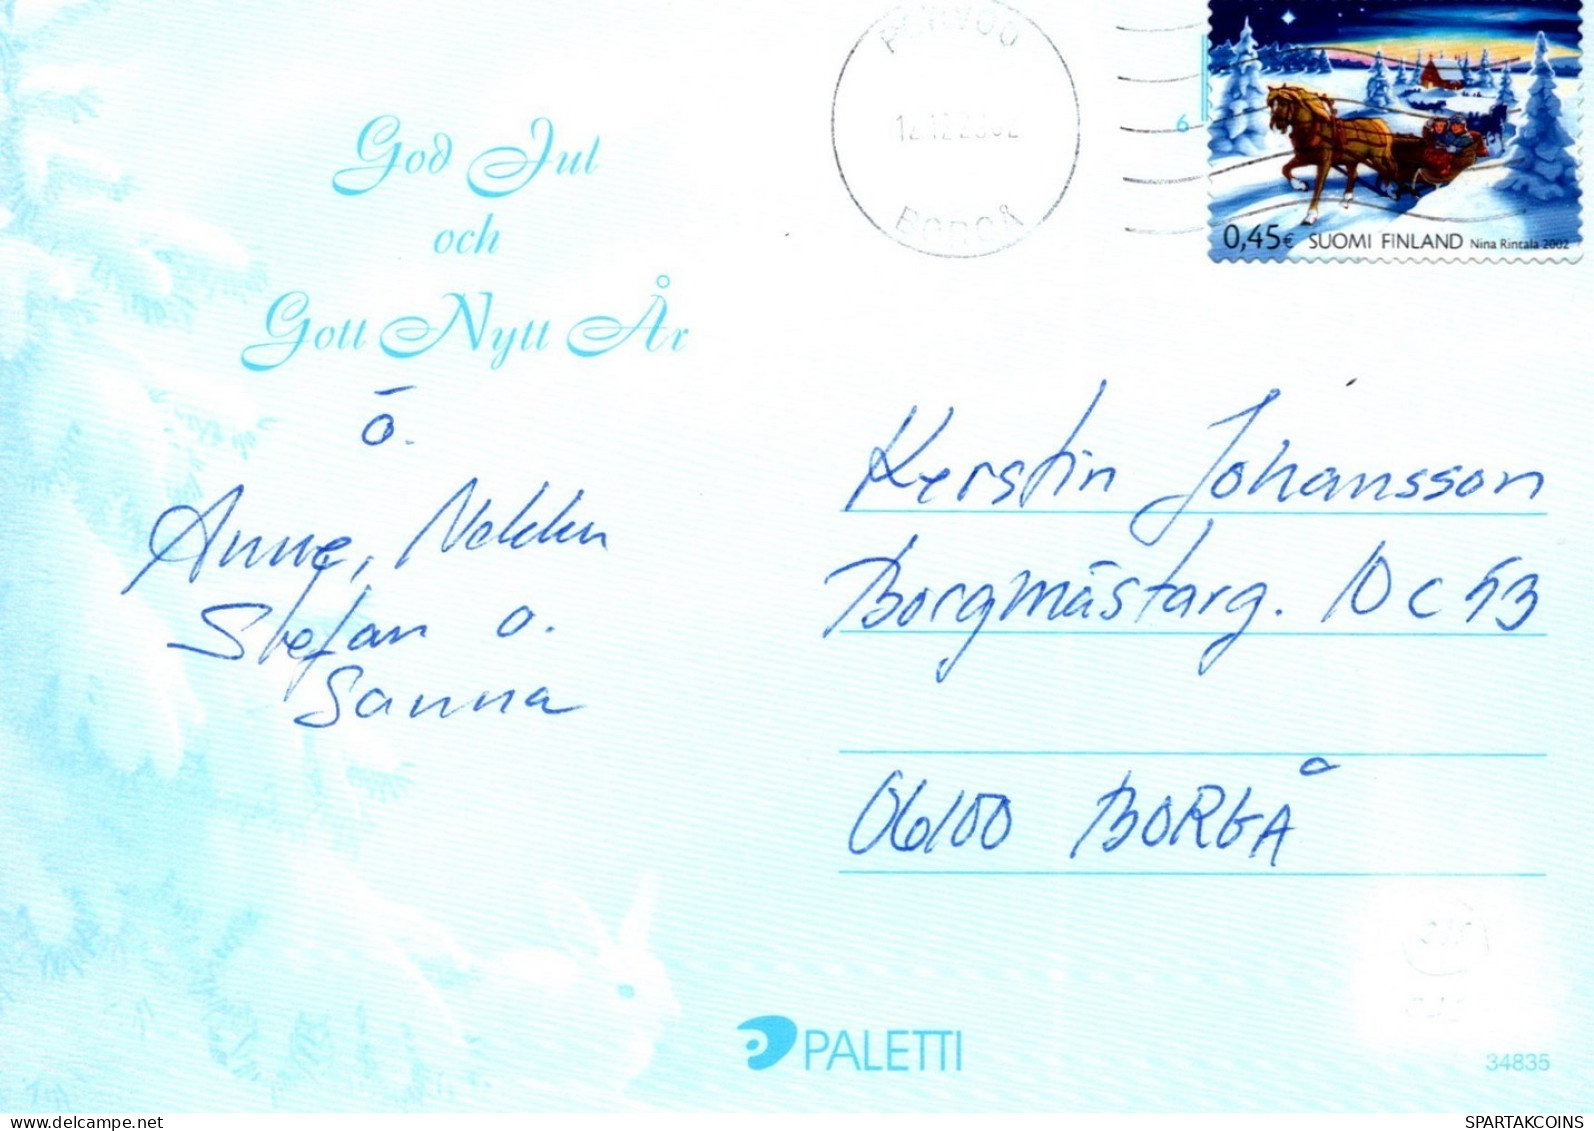 God Jul
och
Gott Nytt År
ö.
Anne,
Stefan o.
Sanna
PORVOO
12.12.2002
BORGÅ
6
0,45€ SUOMI FINLAND Nina Rintala 2002
Kerstin Johansson
Borgmästarg. 10 C 53
06100 BORGÅ
PALETTI
34835
SPARTAKCOINS